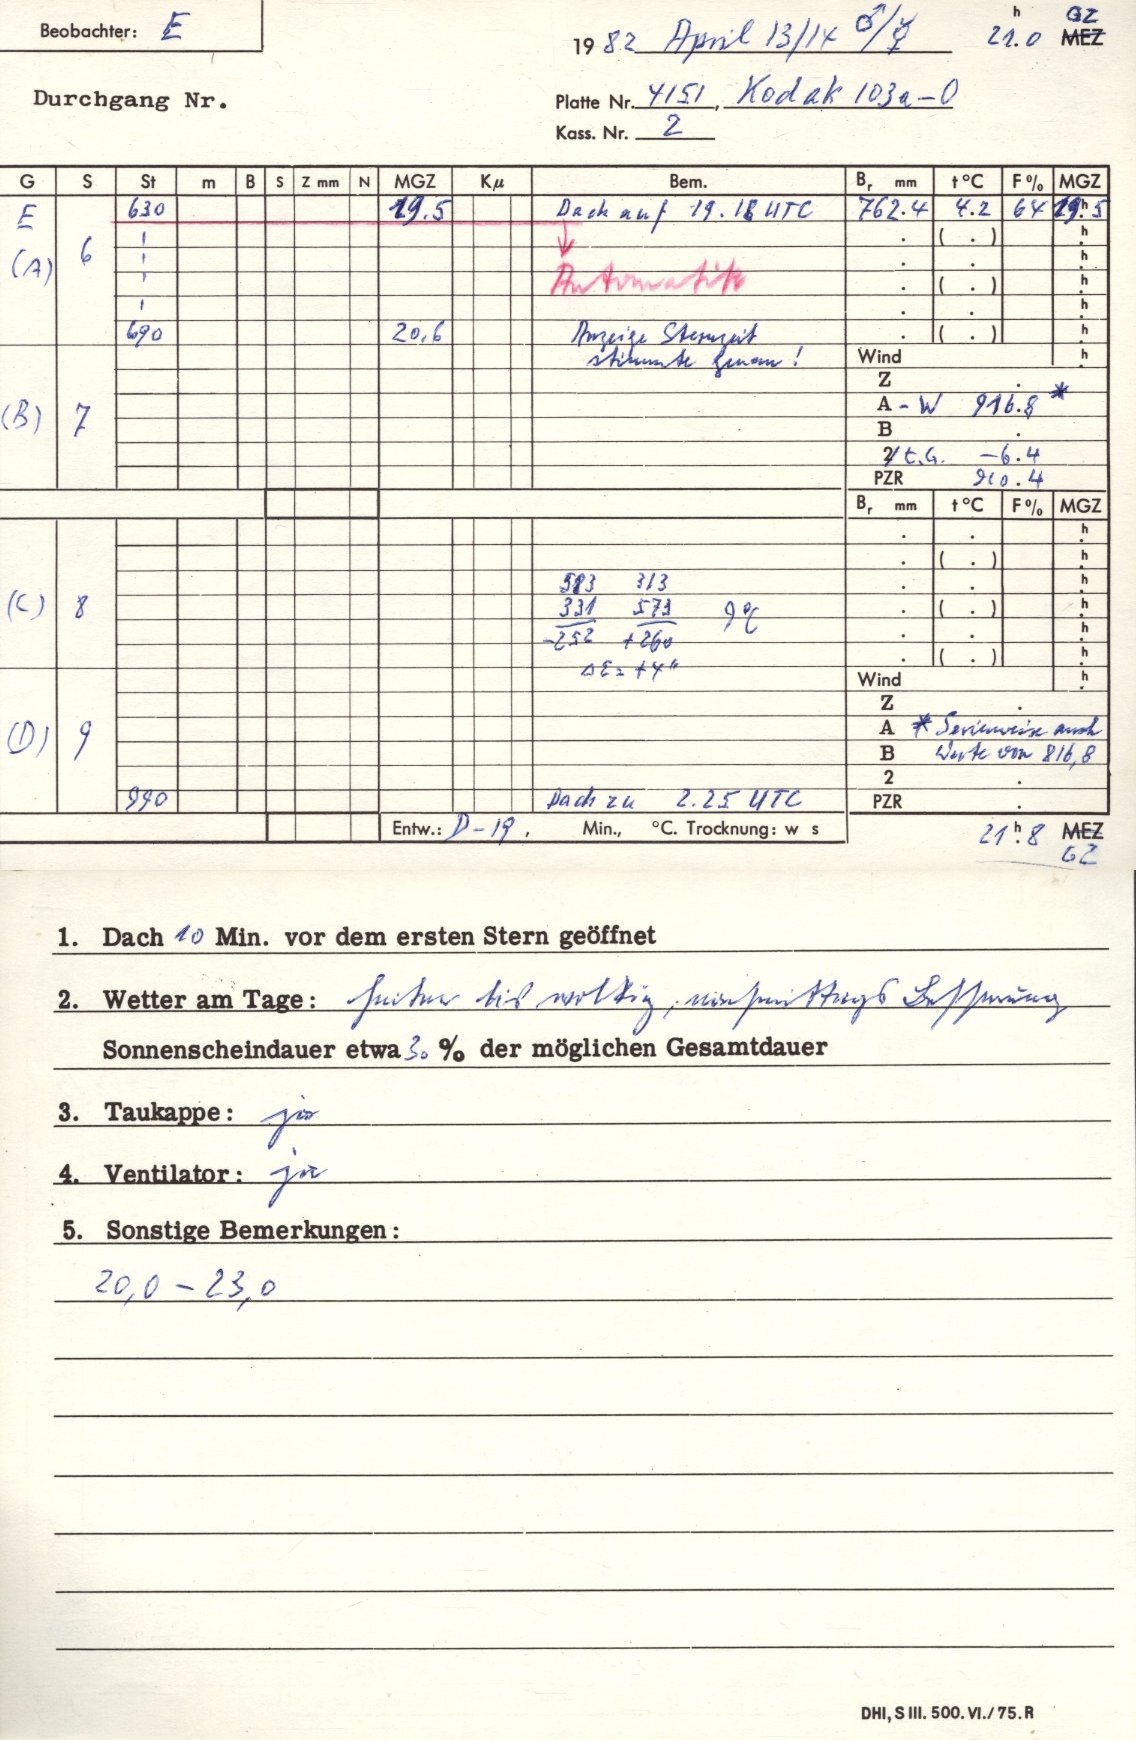 Beobachter: E
1982 April 13/14 ♂/☿ 21.0 h GZ MEZ
Durchgang Nr.
Platte Nr. 4151, Kodak 103a-O
Kass. Nr. 2
G S St m B S Z mm N MGZ Kμ Bem. Br mm t °C F % MGZ
E 630 19.5 Dach auf 19.18 UTC 762.4 4.2 64 19h.5
(A) 6 Automatik
690 20,6 Anzeige Sternzeit
stimmte genau!
Wind
Z .
(B) 7 A - W 916.8 *
B .
2/ t.G. -6.4
PZR 910.4
Br mm t °C F % MGZ
583 313
(C) 8 331 573 9°C
-252 +260
ΔE= +4"
Wind
Z .
(D) 9 A * Serienweise auch
B Werte von 816,8
2 .
990 Dach zu 2.25 UTC PZR .
Entw.: D-19, Min., °C. Trocknung: w s
21h.8 MEZ
GZ
1. Dach 10 Min. vor dem ersten Stern geöffnet
2. Wetter am Tage: heiter bis wolkig, nachmittags
Sonnenscheindauer etwa 30 % der möglichen Gesamtdauer
3. Taukappe: ja
4. Ventilator: ja
5. Sonstige Bemerkungen:
20,0 - 23,0
DHI, S III. 500. VI./75. R